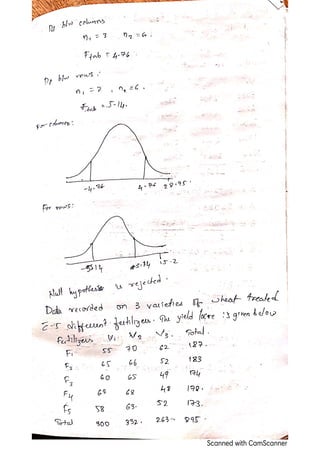 Df b/w columns
n₁ = 3 n₂ = 6.
Ftab = 4.76
Df b/w rows :
n₁ = 2 , n₂ = 6.
Ftab = 5.14.
For columns:
-4.76 4.76 28.95.
For rows:
-5.14 5.14 15.2
Null hypothesis is rejected.
Data recorded on 3 varieties of wheat treated
5 different fertilizers. The yield are given below
Fertilizers V₁ V₂ V₃ Total.
F₁ 55 70 62 187.
F₂ 65 66 52 183
F₃ 60 65 49 174
F₄ 68 48 178.
F₅ 58 63. 52 173.
Total 300 332. 263 895.
Scanned with CamScanner